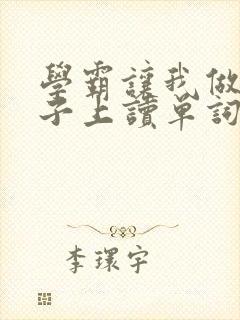 學霸讓我做
子上讀單詞
李環宇